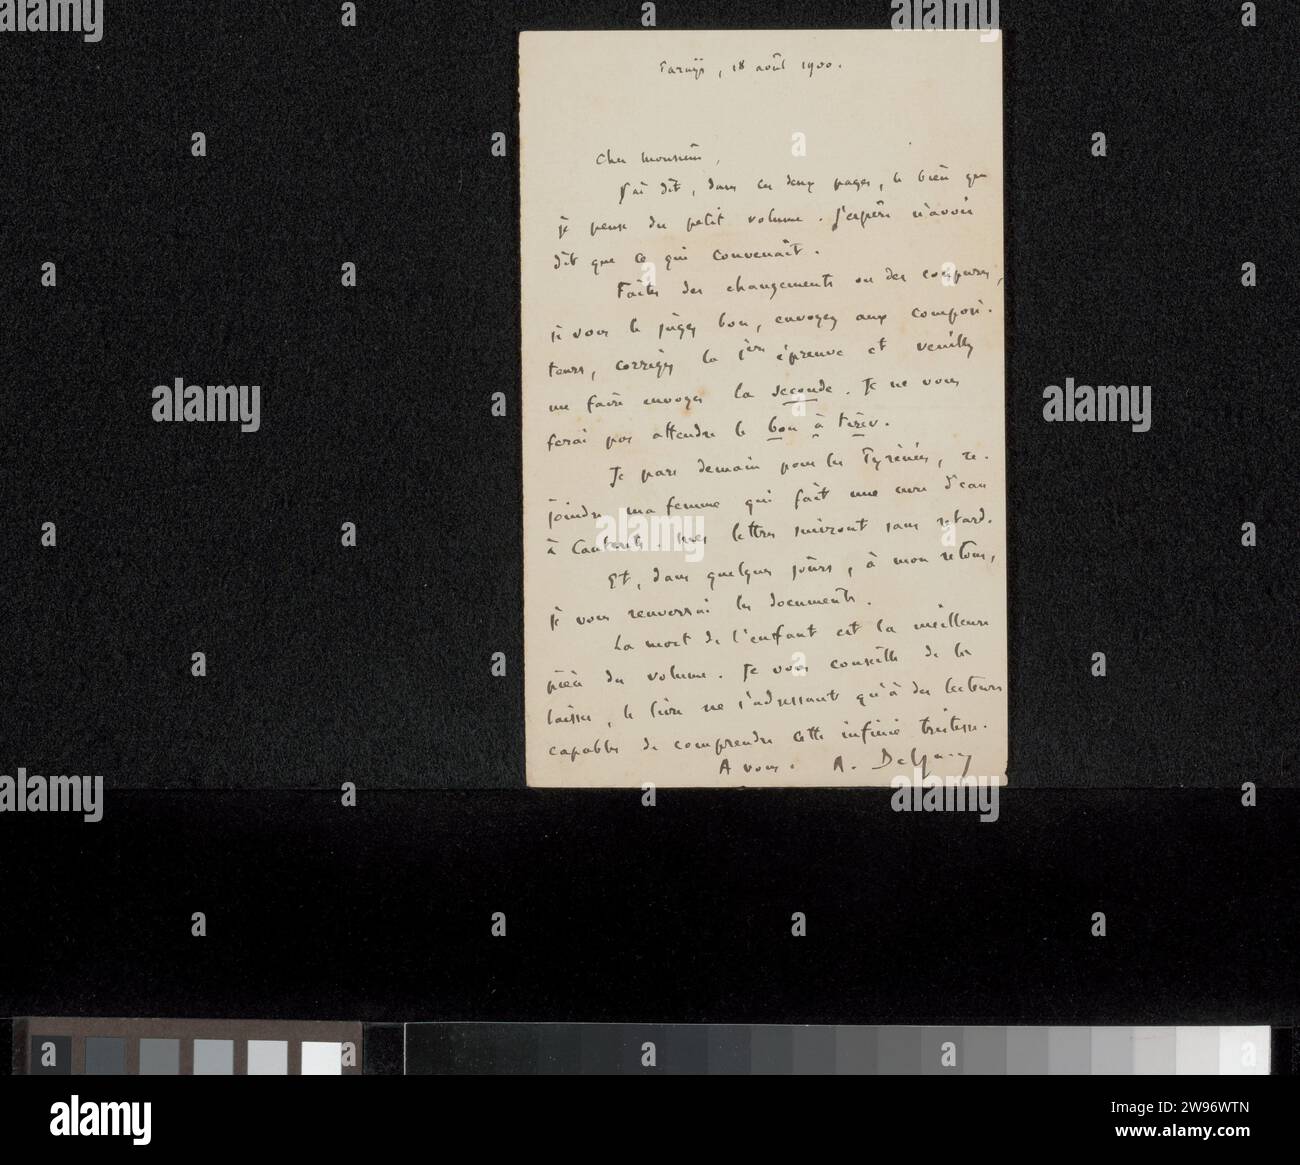 Taruys, 18 août 1900.
Cher Monsieur,
J'ai dit, dans ces deux pages, le bien que
je pense du petit volume. J'espère n'avoir
dit que ce qui convenait.
Faites des changements ou des coupures,
si vous le jugez bon, envoyez aux composi-
teurs, corrigez la 1ère épreuve et veuillez
me faire envoyer la seconde. Je ne vous
ferai pas attendre le bon à tirer.
Je pars demain pour les Pyrénées, re-
joindre ma femme qui fait une cure d'eau
à Cauterets. Mes lettres suivront sans retard.
Et, dans quelques jours, à mon retour,
je vous renverrai les documents.
La mort de l'enfant est la meilleure
pièce du volume. Je vous conseille de la
laisser, le livre ne s'adressant qu'à des lecteurs
capables de comprendre cette infinie tristesse.
A vous. A.
alamy
Image ID: 2W96WTN
www.alamy.com